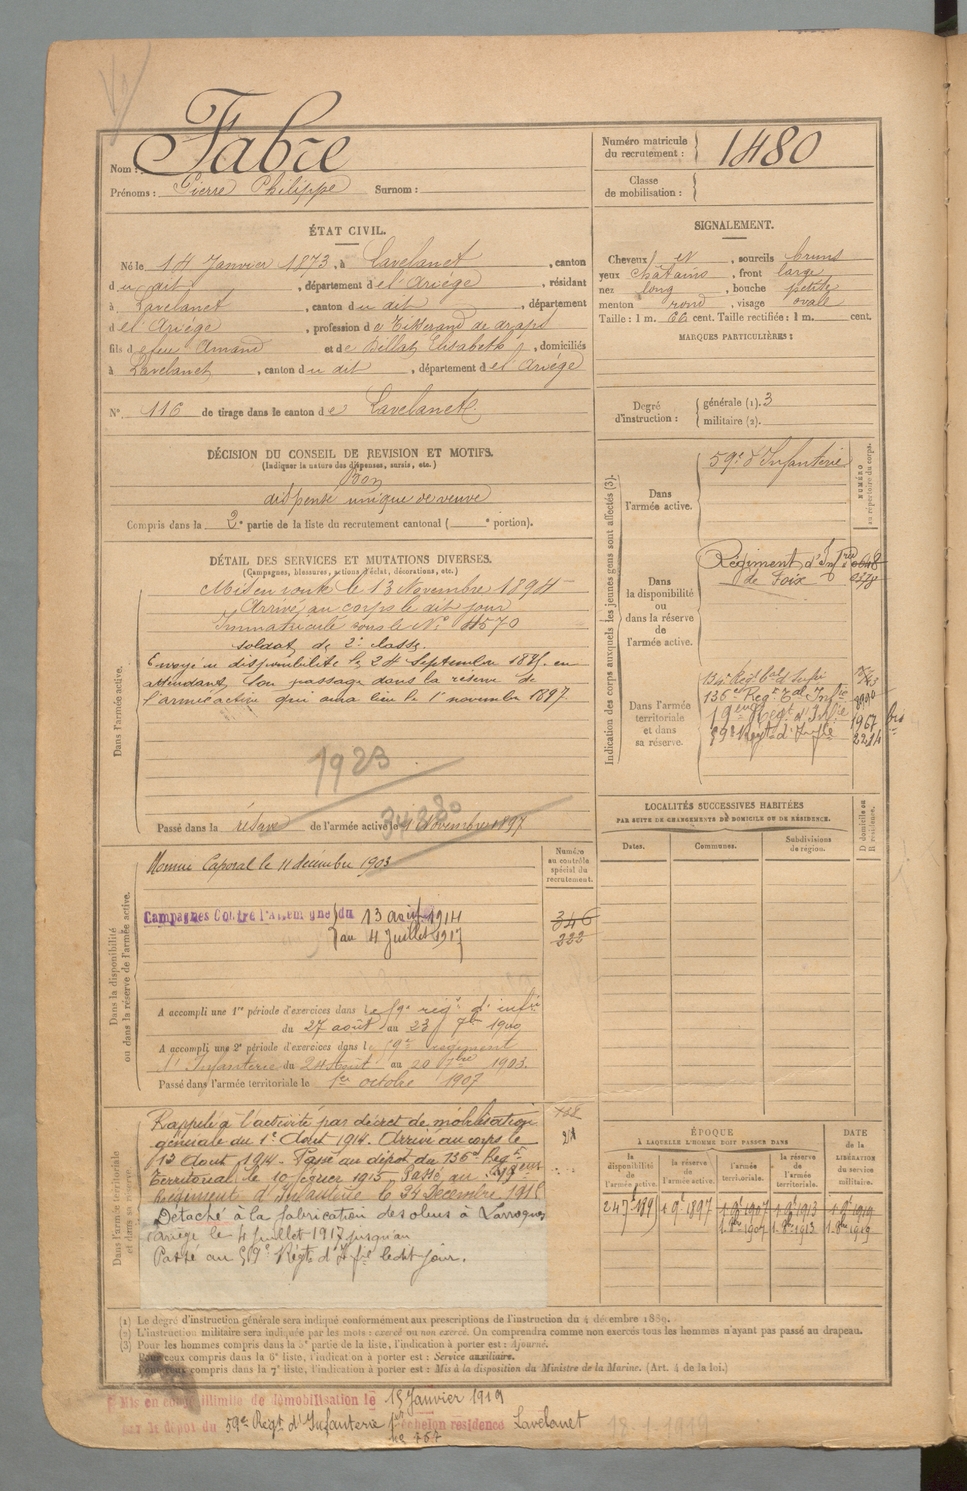 Nom : Fabre
Prénoms : Pierre Philippe Surnom :
Numéro matricule du recrutement : 1480
Classe de mobilisation :
ÉTAT CIVIL.
Né le 14 Janvier 1873, à Lavelanet, canton
du dit, département de l'Ariège, résidant
à Lavelanet, canton du dit, département
de l'Ariège, profession de Tisserand de draps
fils de feu Amand et de Bellat Elisabeth, domiciliés
à Lavelanet, canton du dit, département de l'Ariège
N° 116 de tirage dans le canton de Lavelanet
SIGNALEMENT.
Cheveux et, sourcils bruns
yeux châtains, front large
nez long, bouche petite
menton rond, visage ovale
Taille : 1 m. 66 cent. Taille rectifiée : 1 m. cent.
MARQUES PARTICULIÈRES :
Degré d'instruction : générale (1). 3
militaire (2).
DÉCISION DU CONSEIL DE REVISION ET MOTIFS.
(Indiquer la nature des dispenses, sursis, etc.)
Bon
dispensé unique de veuve
Compris dans la 2e partie de la liste du recrutement cantonal ( e portion).
DÉTAIL DES SERVICES ET MUTATIONS DIVERSES.
(Campagnes, blessures, actions d'éclat, décorations, etc.)
Dans l'armée active.
Mis en route le 13 Novembre 1894
Arrivé au corps le dit jour
Immatriculé sous le N° 4570
soldat de 2e classe.
Envoyé en disponibilité le 24 Septembre 1895. en
attendant son passage dans la réserve de
l'armée active qui aura lieu le 1er novembre 1897
1923
Passé dans la réserve de l'armée active le 1 Novembre 1897
Indication des corps auxquels les jeunes gens sont affectés (3).
NUMÉRO au répertoire du corps.
Dans l'armée active.
59e d'Infanterie
Dans la disponibilité ou dans la réserve de l'armée active.
Régiment d'Infrie
de Foix
Dans l'armée territoriale et dans sa réserve.
134e Régt tal d'Infie
136e Régt tal Infie
19eme Régt d'Infie 1967 bis
59e Régt d'Infie 2214
LOCALITÉS SUCCESSIVES HABITÉES
PAR SUITE DE CHANGEMENTS DE DOMICILE OU DE RÉSIDENCE.
Dates. Communes. Subdivisions de région. D domicile ou R résidence.
Dans la disponibilité ou dans la réserve de l'armée active.
Numéro au contrôle spécial du recrutement.
Nommé Caporal le 11 décembre 1903
Campagnes Contre l'Allemagne du 13 août 1914
au 4 Juillet 1917
346
222
A accompli une 1re période d'exercices dans le 59e rég. d'infie
du 27 août au 23 7bre 1900
A accompli une 2e période d'exercices dans le 59e régiment
d'Infanterie du 24 Août au 20 7bre 1903.
Passé dans l'armée territoriale le 1er octobre 1907
Dans l'armée territoriale et dans sa réserve.
Rappelé à l'activité par décret de mobilisation
générale du 1er Août 1914. Arrivé au corps le
13 Août 1914. Passé au dépôt du 136e Régt
Territorial le 10 février 1915. Passé au 19eme
Régiment d'Infanterie le 24 Décembre 1915
Détaché à la fabrication des obus à Larroque
Ariège le 4 juillet 1917 jusqu'au
Passé au 59e Régt d'Ifie ledit jour.
ÉPOQUE
À LAQUELLE L'HOMME DOIT PASSER DANS
la disponibilité de l'armée active. la réserve de l'armée active. l'armée territoriale. la réserve de l'armée territoriale.
DATE de la LIBÉRATION du service militaire.
24 7bre 1895 1. 9bre 1897 1. 9bre 1907 1. 9bre 1913 1. 9bre 1919
1. 8bre 1907 1. 8bre 1913 1. 8bre 1919
(1) Le degré d'instruction générale sera indiqué conformément aux prescriptions de l'instruction du 4 décembre 1889.
(2) L'instruction militaire sera indiquée par les mots : exercé ou non exercé. On comprendra comme non exercés tous les hommes n'ayant pas passé au drapeau.
(3) Pour les hommes compris dans la 5e partie de la liste, l'indication à porter est : Ajourné.
Pour ceux compris dans la 6e liste, l'indication à porter est : Service auxiliaire.
Pour ceux compris dans la 7e liste, l'indication à porter est : Mis à la disposition du Ministre de la Marine. (Art. 4 de la loi.)
Mis en congé illimité de démobilisation le 15 Janvier 1919
par le dépôt du 59e Régt d'Infanterie 1er échelon résidence Lavelanet
No 767